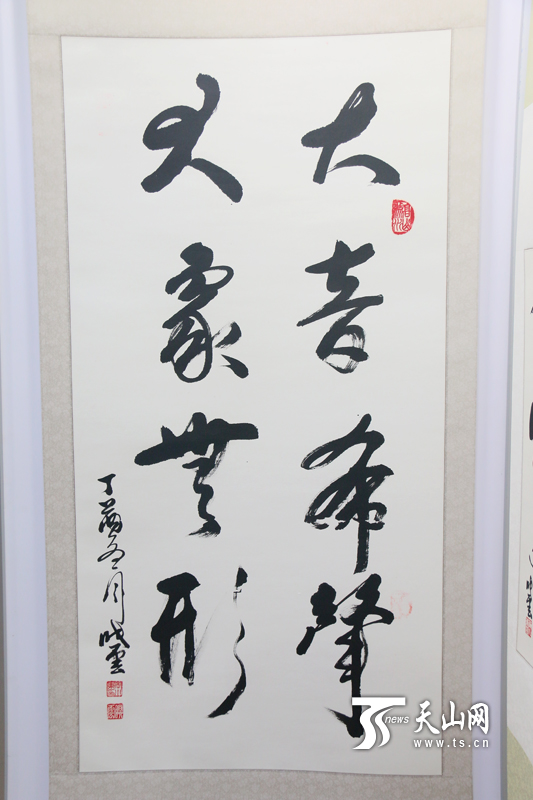 大音希聲
大象無形
丁酉冬月 晓雲
TS news 天山网
www.ts.cn